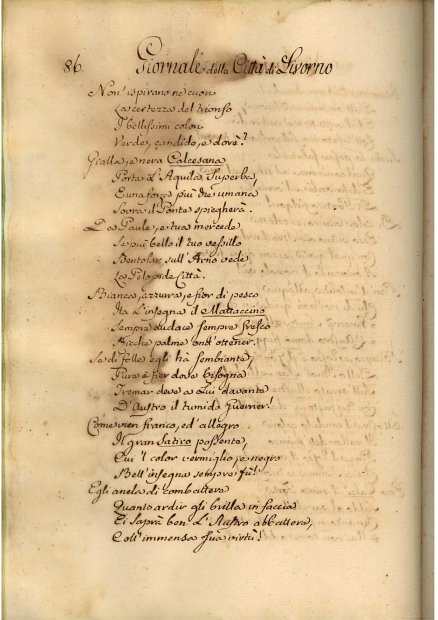 86. Giornale della Città di Livorno
Non' ispirano ne cuori
La certezza del trionfo
I bellissimi colori
Verde, candido, e dorè?
Gialla, e nera Calcesana
Porta L'Aquila Superba,
E una forza più che umana
Sovra il Ponte spiegherà.
L a Paule, e tua mercede
Se più bello il tuo vessillo
Ventolar sull' Arno vede
La Pelopide Città.
Bianca, azzurra, e fior di pesco
Ha L'insegna il Mattaccino
Sempre audace sempre fresco
Ricche palme ond' ottener.
Se di folle egli hà sembiante,
Pure è fier dove bisogna
Tremar deve a Lui davante
D'Austro il tumido Guerrier!
Come vien franco, ed' allegro
Il gran Satiro possente,
Cui 'l color vermiglio, e negro
Bell' insegna sempre fù!
Egli anela di combattere
Quanto ardir gli brilla in faccia
Ei saprà ben L'Austro abbattere,
Coll' immensa sua virtù!